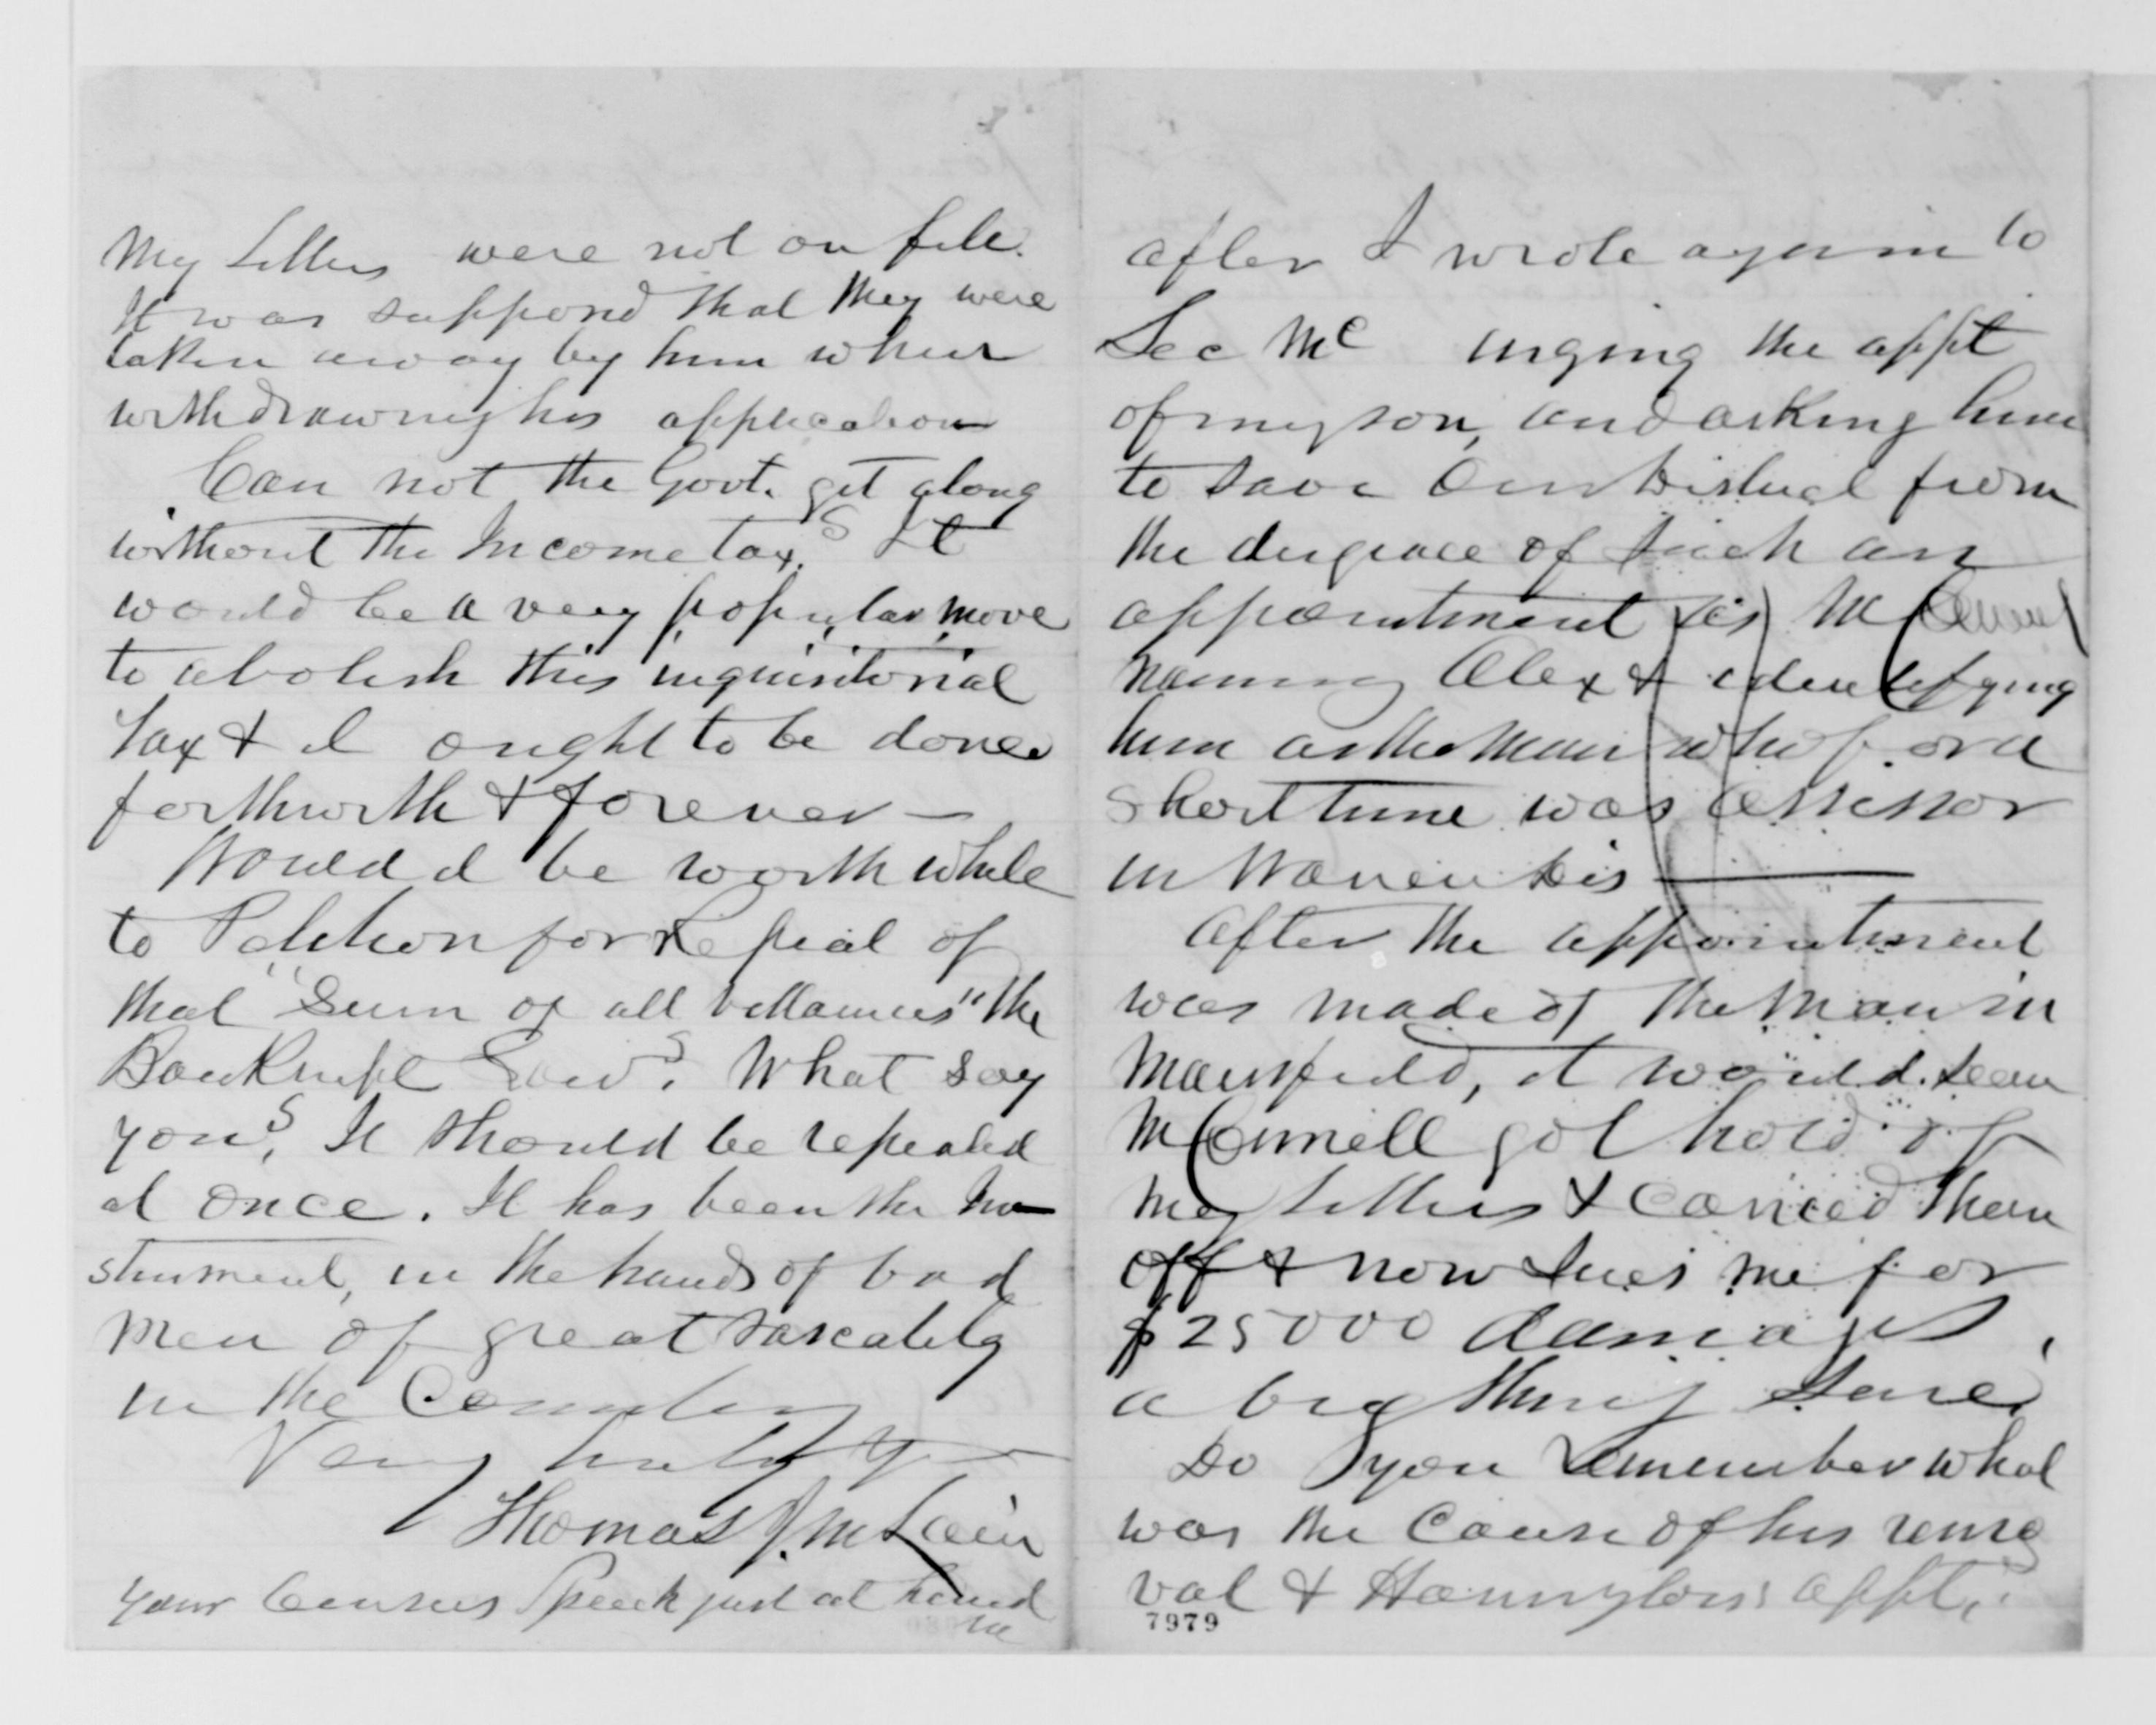 My Letters were not on file.
It was supposed that they were
taken away by him when
withdrawing his application
Can not the Govt. get along
without the Income tax? It
would be a very popular move
to abolish this inquisitorial
Tax & it ought to be done
forthwith & forever —
Would it be worth while
to Petition for Repeal of
that "Sum of all villainies" the
Bankrupt Law? What say
you? It should be repealed
at once. It has been the in
strument, in the hands of bad
men of great rascality
in the Country
Very truly Yr
Thomas J. McLain
your Census Speech just at hand
after I wrote again to
Sec Mc urging the appt
of my son, and asking him
to save our District from
the disgrace of such an
appointment as McConnell
naming Alex & identifying
him as the man who for a
short time was assessor
in Warren Dis —
After the appointment
was made of the man in
Mansfield, it would seem
McConnell got hold of
my Letters & carried them
off & now sues me for
$25000 damages,
a big thing sure.
Do you remember what
was the cause of his remo
val & Harringtons appt,
7979